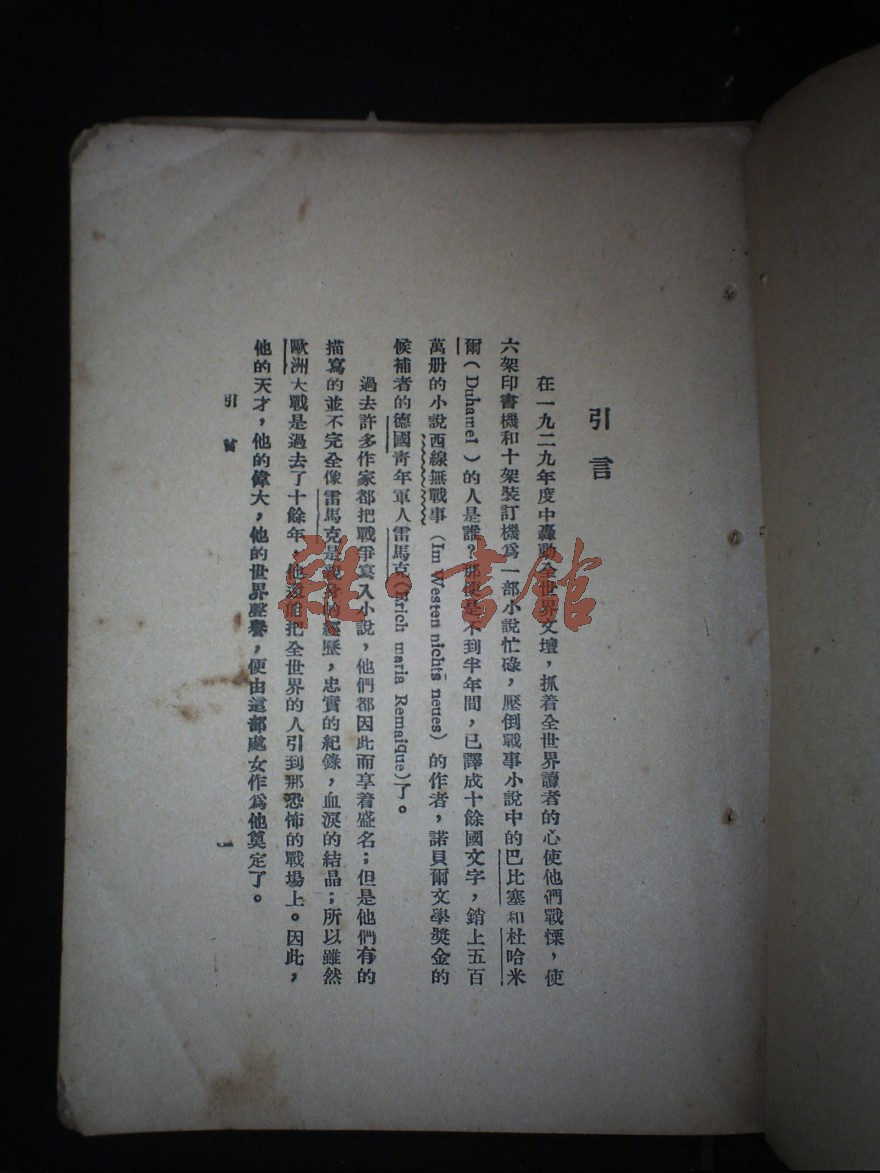 引言
在一九二九年度中轟動全世界文壇，抓着全世界讀者的心使他們戰慄，使
六架印書機和十架裝訂機為一部小說忙碌，壓倒戰事小說中的巴比塞和杜哈米
爾（Duhamel）的人是誰？那便是不到半年間，已譯成十餘國文字，銷上五百
萬册的小說西線無戰事（Im Westen nichts neues）的作者，諾貝爾文學獎金的
候補者的德國青年軍人雷馬克（Erich maria Remaique）了。
過去許多作家都把戰爭寫入小說，他們都因此而享着盛名；但是他們有的
描寫的並不完全像雷馬克是親身的經歷，忠實的紀錄，血淚的結晶；所以雖然
歐洲大戰是過去了十餘年，他還能把全世界的人引到那恐怖的戰場上。因此，
他的天才，他的偉大，他的世界聲譽，便由這部處女作為他奠定了。
引言
一
雜·書館